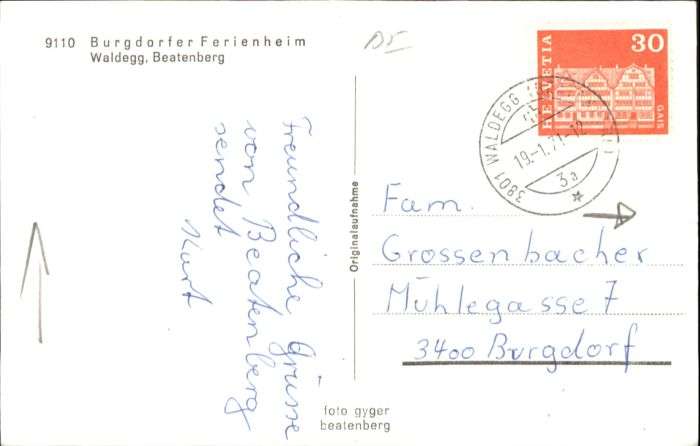 9110 Burgdorfer Ferienheim
Waldegg, Beatenberg
Freundliche Grüsse
von Beatenberg
sendet
Kurt
Originalaufnahme
foto gyger
beatenberg
HELVETIA
30
GAIS
3801 WALDEGG
19.-1.71-12
3a
Fam.
Grossenbacher
Mühlegasse 7
3400 Burgdorf